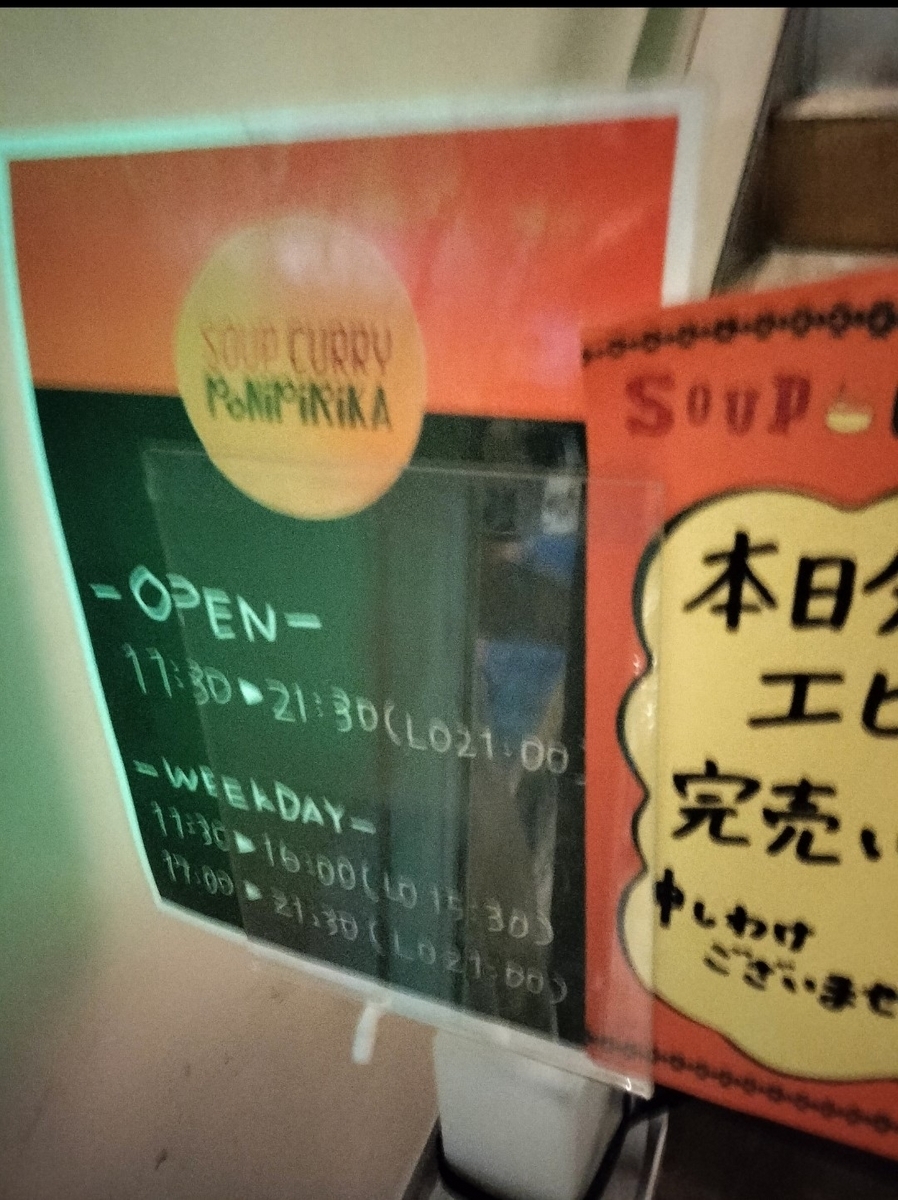 SOUP CURRY
PONIPIRIKA
-OPEN-
11:30▶21:30(LO21:00)
=WEEKDAY=
11:30▶16:00(LO 15:30)
17:00▶21:30(LO21:00)
SOUP
本日分
エビ
完売い
申しわけ
ございませ